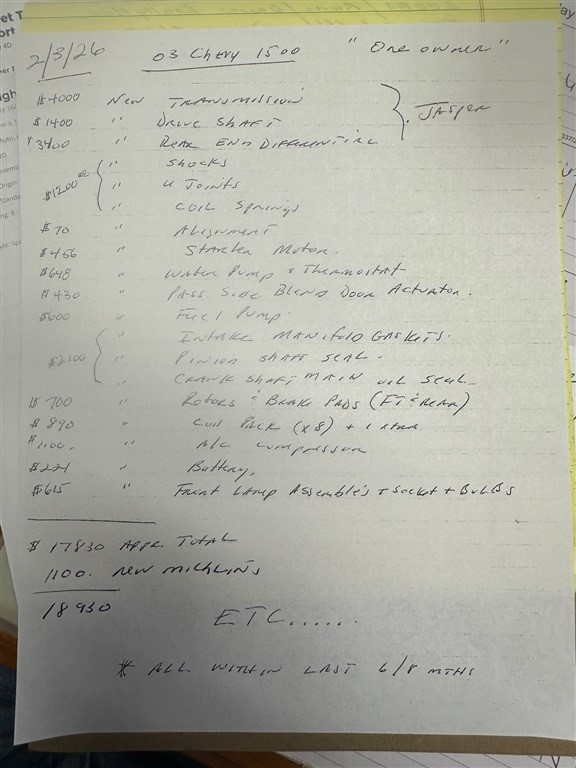 2/3/26 03 Chevy 1500 "One owner"
$4000 New Transmission
$1400 " Drive Shaft } Jasper
$3400 " Rear End Differential
" Shocks
$1200 00 { " U Joints
" Coil Springs
$70 " Alignment
$456 " Starter Motor.
$648 " Water Pump & Thermostat
$430 " Pass. Side Blend Door Actuator.
$600 " Fuel Pump.
" Intake Manifold Gaskets.
$2100 { " Pinion Shaft Seal.
" Crank Shaft Main Oil Seal
$700 " Rotors & Brake Pads (FT & Rear)
$890 " Coil Pack (x8) + 1 xtra
$1100. " A/C Compressor
$221 " Battery.
$615 " Front Lamp Assemble's + Socket + Bulbs
$17830 Appx. Total
1100. New Michlins
18930
ETC......
* All within last 6/8 mths